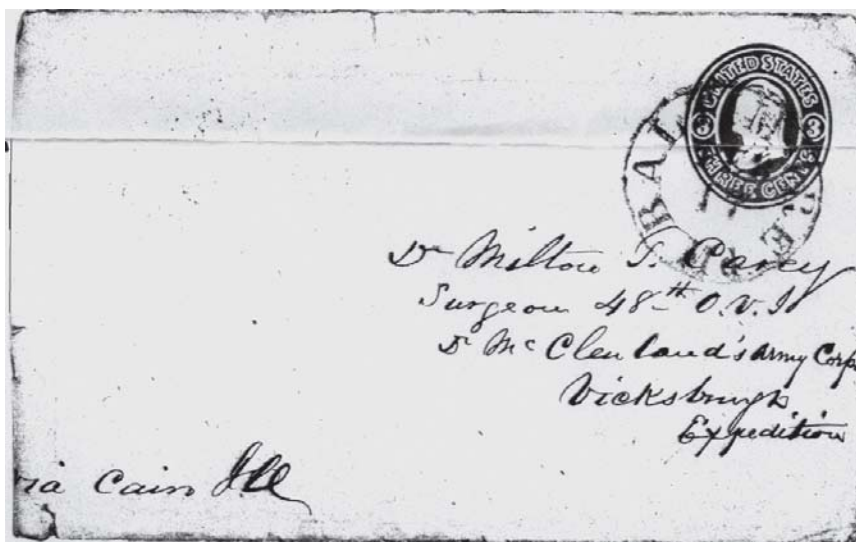 UNITED STATES
3 3
THREE CENTS
11
Dr Milton T. Carey
Surgeon 48th O.V.I
Dr McClenland's Army Corps
Vicksburgh
Expedition
via Cairo Ill